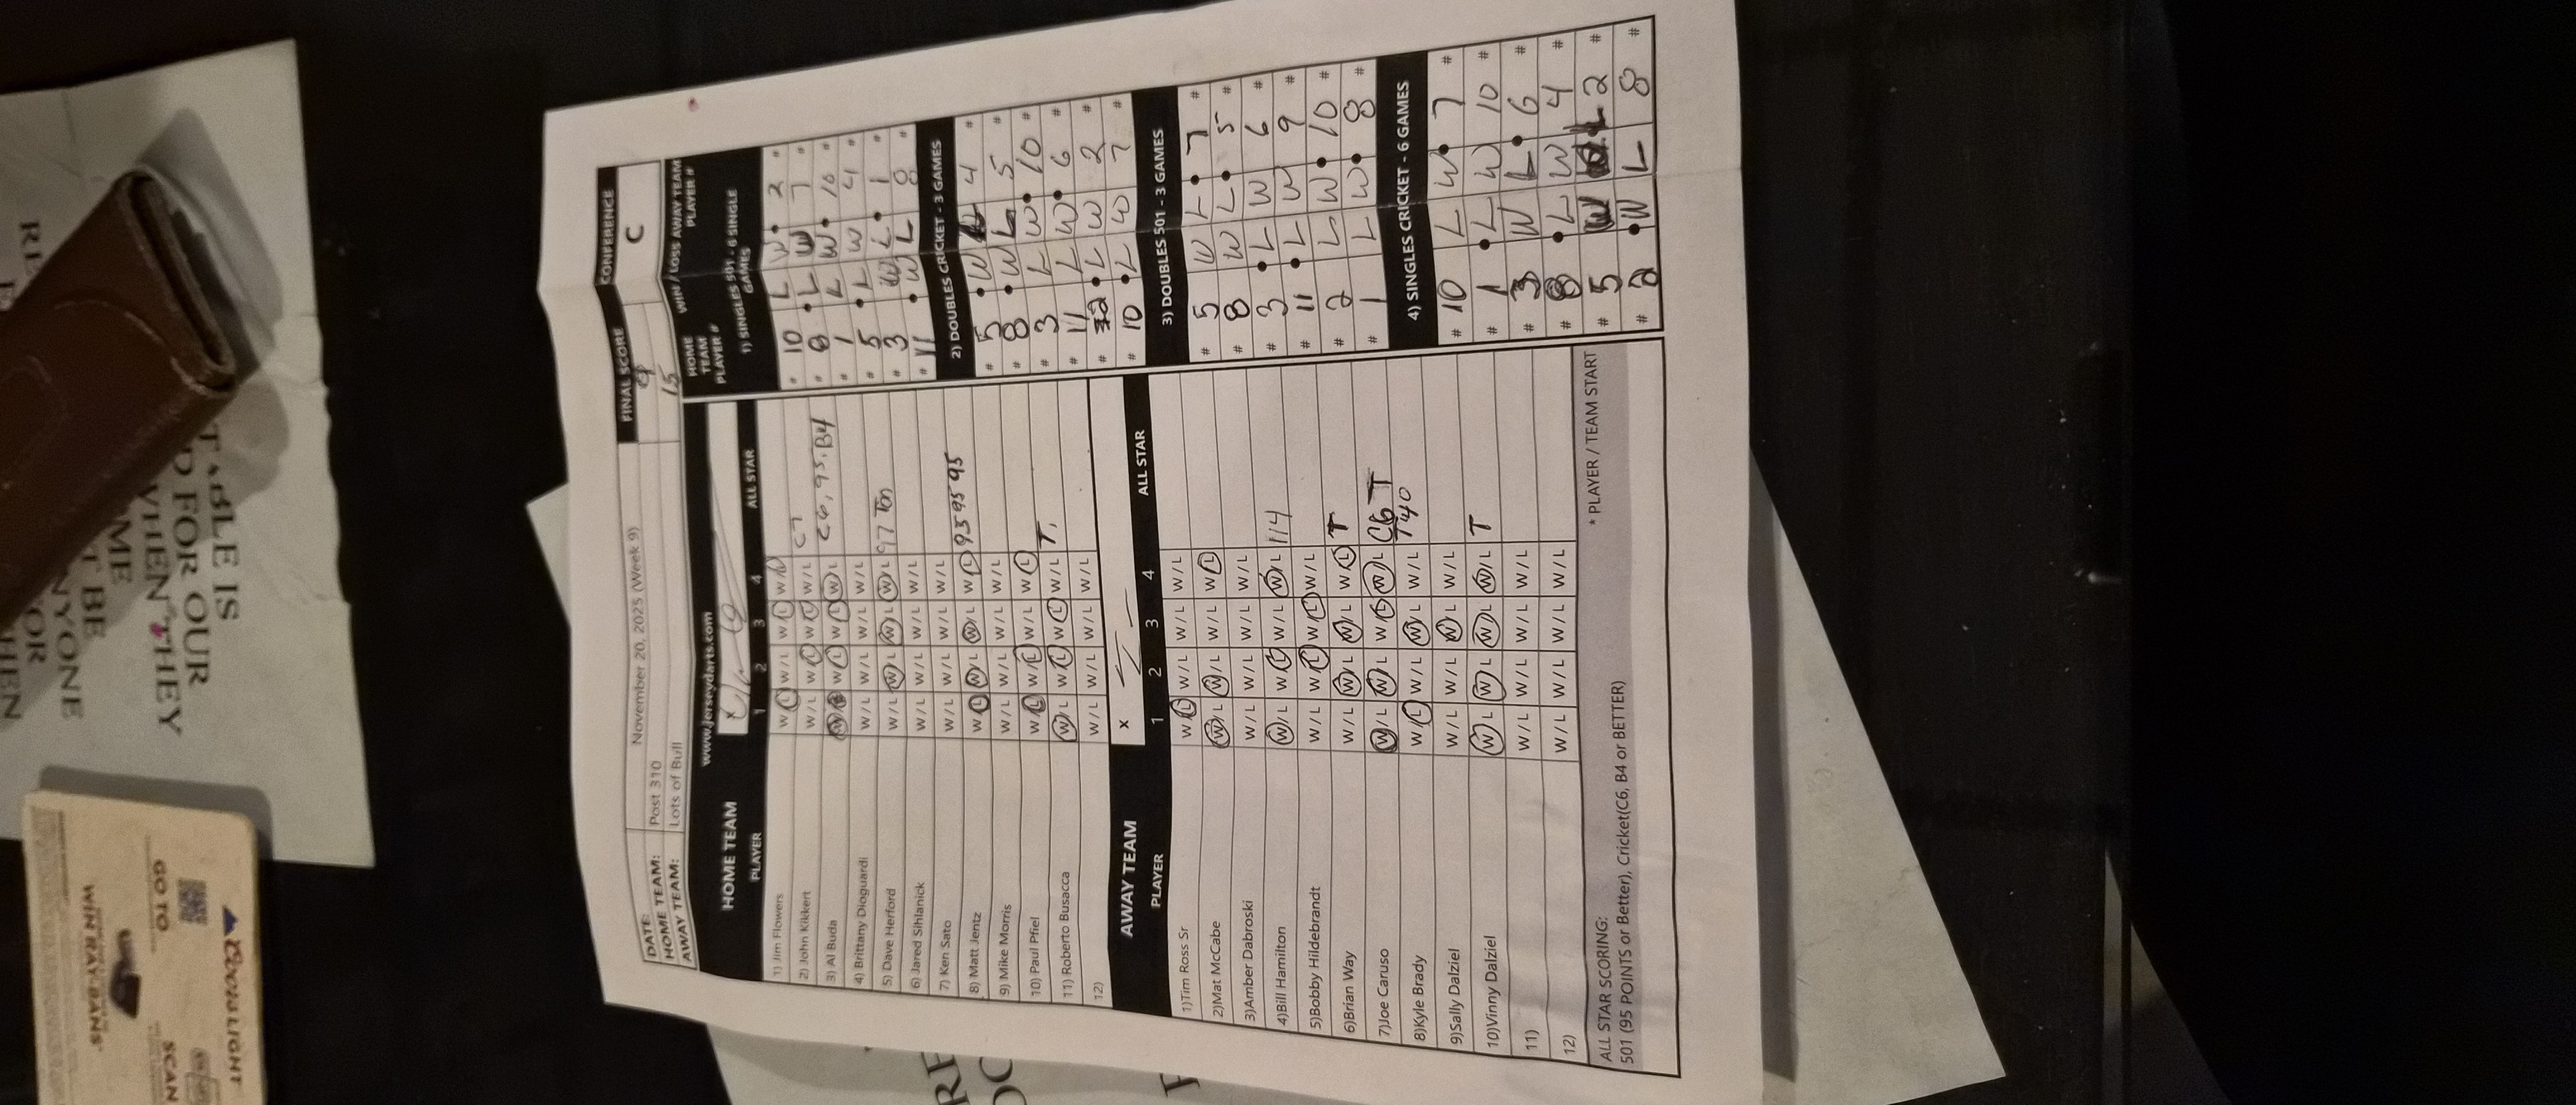 DATE: November 20, 2025 (Week 9) FINAL SCORE CONFERENCE
HOME TEAM: Post 310 9 C
AWAY TEAM: Lots of Bull 15
www.jerseydarts.com
HOME TEAM x
PLAYER 1 2 3 4 ALL STAR
1) Jim Flowers W/L W/L W/L W/L C7
2) John Kikkert W/L W/L W/L W/L
3) Al Buda W/L W/L W/L W/L C6, 95, B4
4) Brittany Dioguardi W/L W/L W/L W/L
5) Dave Herford W/L W/L W/L W/L 97 Ton
6) Jared Sihlanick W/L W/L W/L W/L
7) Ken Sato W/L W/L W/L W/L
8) Matt Jentz W/L W/L W/L W/L 95 95 95
9) Mike Morris W/L W/L W/L W/L
10) Paul Pfiel W/L W/L W/L W/L
11) Roberto Busacca W/L W/L W/L W/L T
12) W/L W/L W/L W/L
AWAY TEAM x
PLAYER 1 2 3 4 ALL STAR
1)Tim Ross Sr W/L W/L W/L W/L
2)Mat McCabe W/L W/L W/L W/L
3)Amber Dabroski W/L W/L W/L W/L
4)Bill Hamilton W/L W/L W/L W/L 114
5)Bobby Hildebrandt W/L W/L W/L W/L
6)Brian Way W/L W/L W/L W/L T
7)Joe Caruso W/L W/L W/L W/L C6 T
T40
8)Kyle Brady W/L W/L W/L W/L
9)Sally Dalziel W/L W/L W/L W/L
10)Vinny Dalziel W/L W/L W/L W/L T
11) W/L W/L W/L W/L
12) W/L W/L W/L W/L
ALL STAR SCORING: * PLAYER / TEAM START
501 (95 POINTS or Better), Cricket(C6, B4 or BETTER)
HOME TEAM PLAYER # WIN / LOSS AWAY TEAM PLAYER #
1) SINGLES 501 - 6 SINGLE GAMES
# 10 L W 2 #
# 8 L W 7 #
# 1 L W 10 #
# 5 L W 4 #
# 3 W L 1 #
# 11 W L 8 #
2) DOUBLES CRICKET - 3 GAMES
# 5 W L 4 #
# 8 W L 5 #
# 3 L W 10 #
# 11 L W 6 #
# 2 L W 2 #
# 10 L W 7 #
3) DOUBLES 501 - 3 GAMES
# 5 W L 7 #
# 8 W L 5 #
# 3 L W 6 #
# 11 L W 9 #
# 2 L W 10 #
# 1 L W 8 #
4) SINGLES CRICKET - 6 GAMES
# 10 L W 7 #
# 1 L W 10 #
# 3 W L 6 #
# 8 L W 4 #
# 5 W L 2 #
# 2 W L 8 #
T•BLE IS
D FOR OUR
WHEN THEY
GO TO
WIN RAY-BANS
SCAN